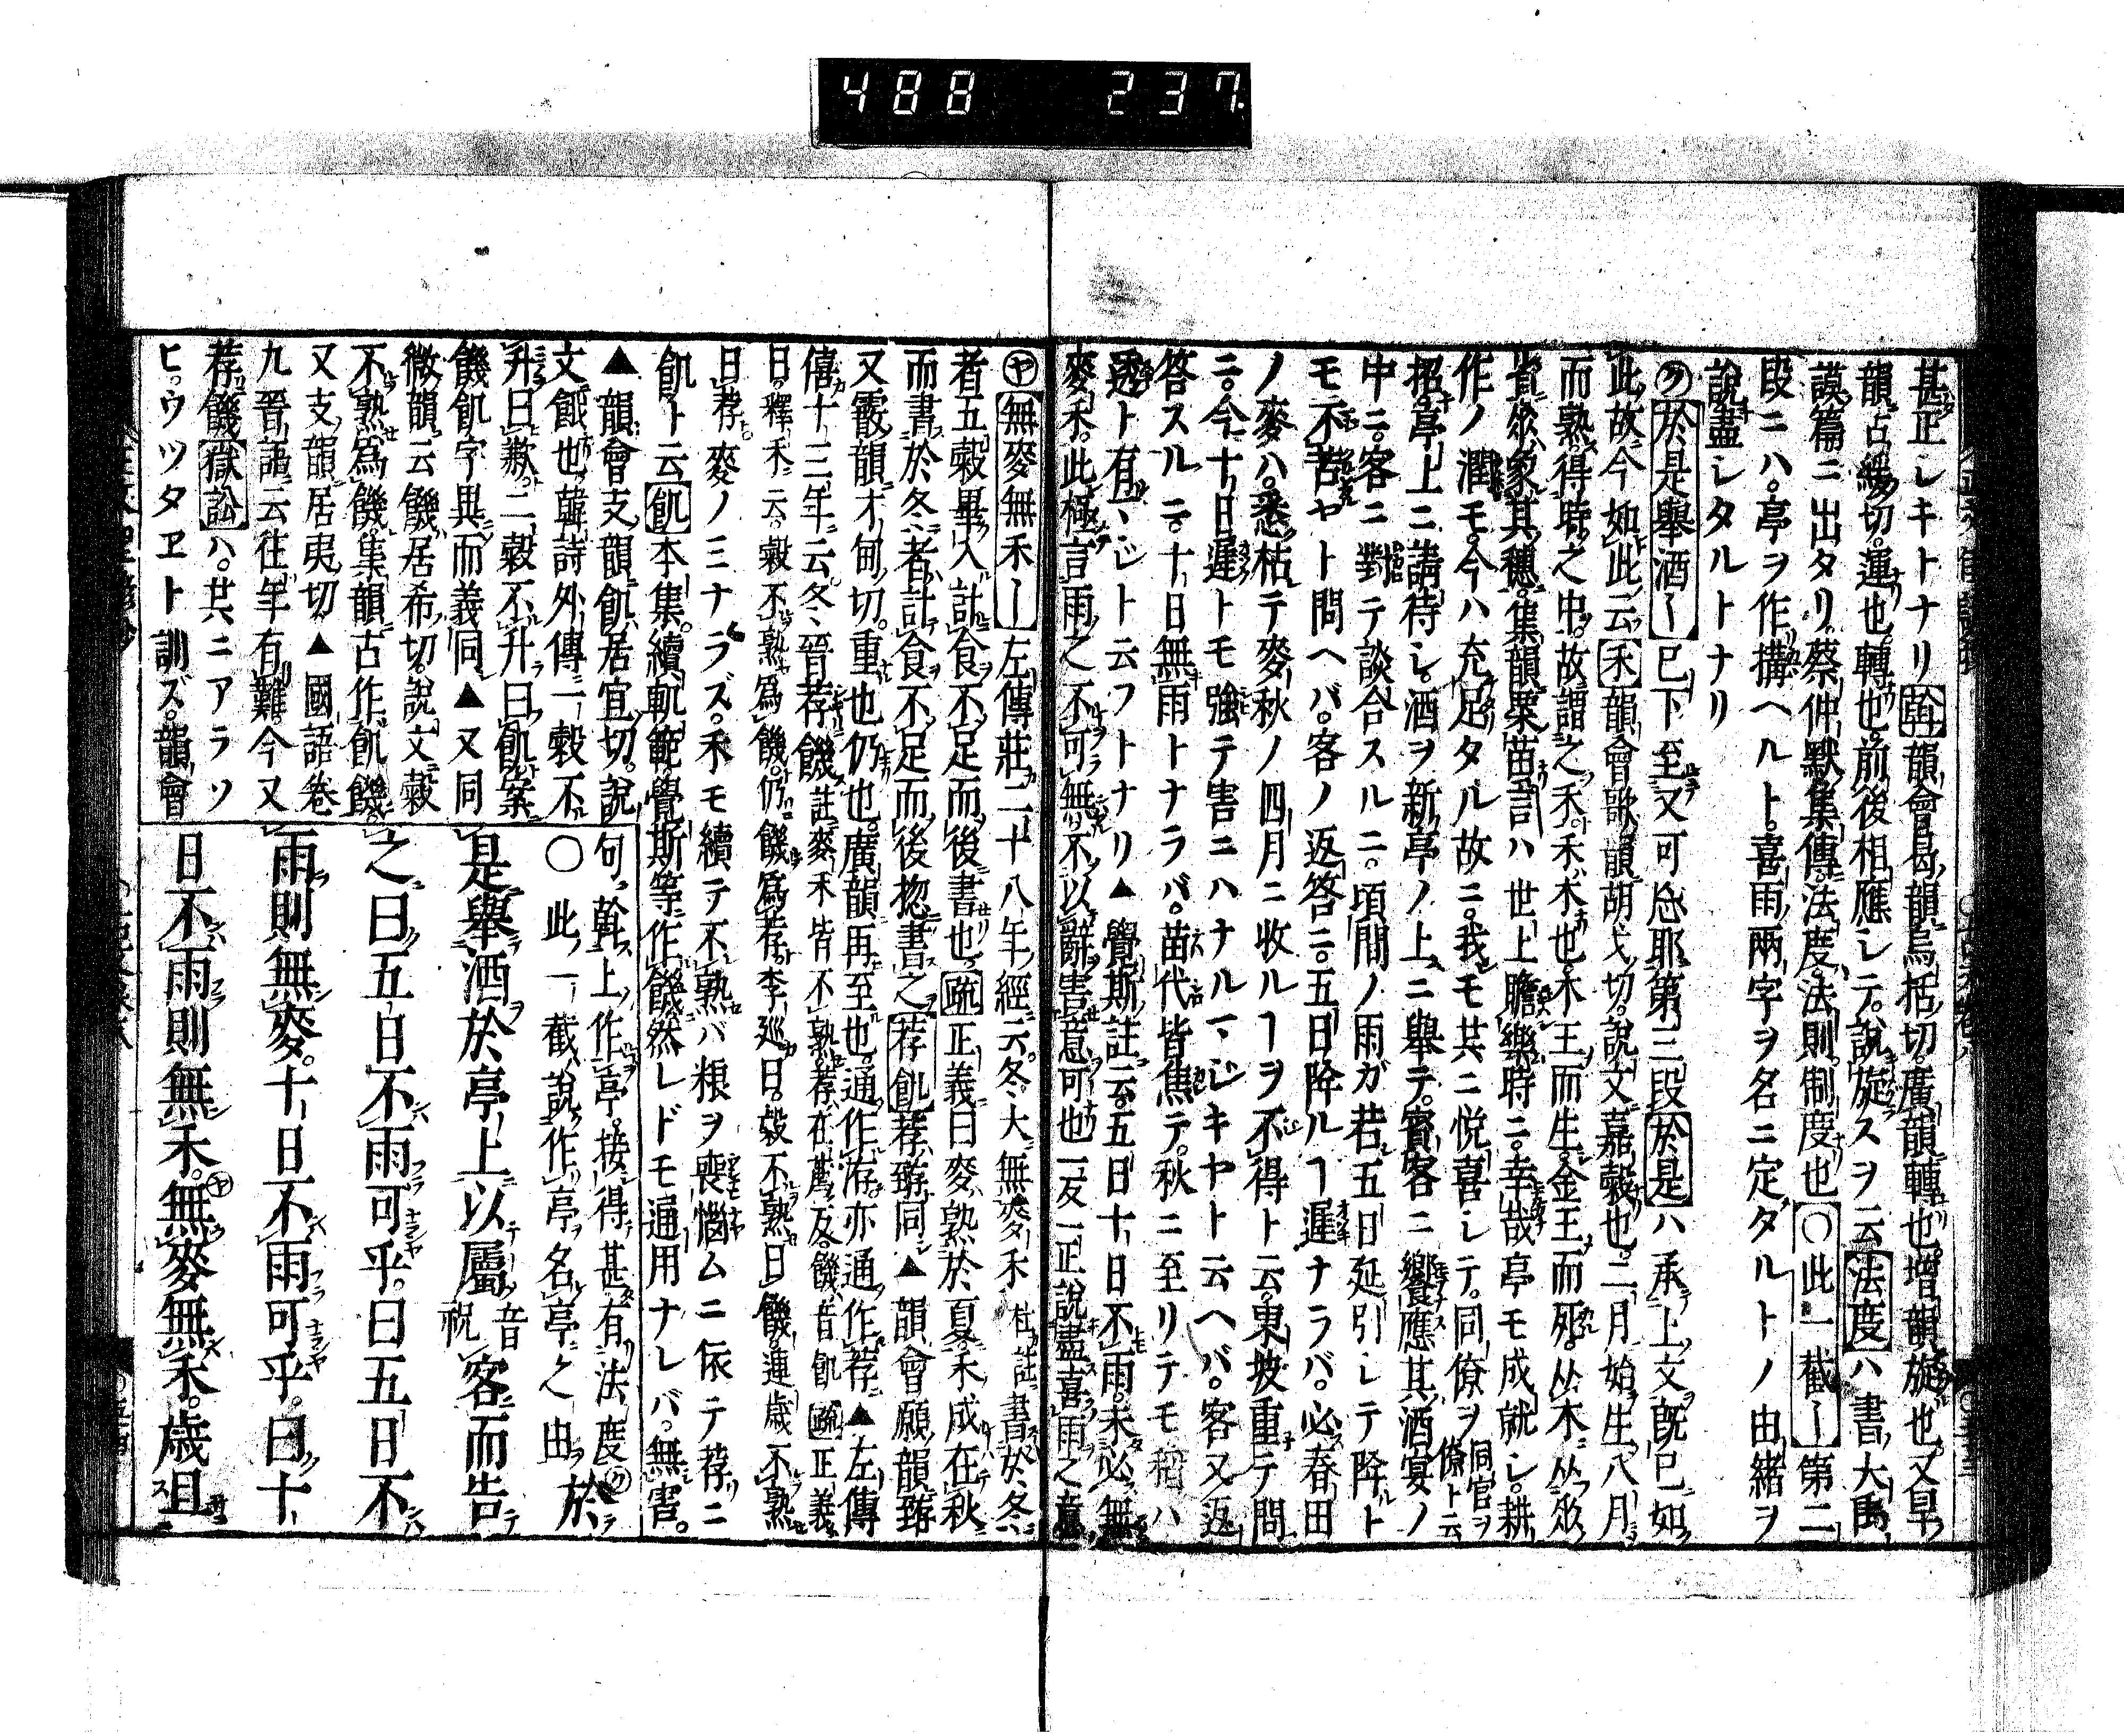 488 237.
甚正シキトナリ斡韻會曷韻烏括切廣韻轉也増韻旋也又旱
韻古緩切運也轉也前後相應シテ説旋スヲ云法度ハ書大禹
謨篇ニ出タリ蔡仲默集傳法度法則制度也〇此一截ー第二
段ニハ亭ヲ作搆ヘルト喜雨兩字ヲ名ニ定タルトノ由緒ヲ
説盡シタルトナリ
於是舉酒ー已下至又可忘耶第三段於是ハ承上文既已如
此故今如此云禾韻會歌韻胡戈切説文嘉穀也二月始生八月
而熟得時之中故謂之禾禾木也木王而生金王而死从木从𠂹
省𠂹象其穗集韻粟苗言ハ世上瞻樂時ニ幸哉亭モ成就シ耕
作ノ潤モ今ハ充足タル故ニ我モ共ニ悅喜シテ同僚ヲ同官ヲ僚ト云
招亭上ニ請待シ酒ヲ新亭ノ上ニ舉テ賓客ニ饗應其酒宴ノ
中ニ客ニ對テ談合スルニ頃間ノ雨ガ若五日延引シテ降ト
モ不苦ヤト問ヘバ客ノ返答ニ五日降ルヿ遲ナラバ必春田
ノ麥ハ悉枯テ麥秋ノ四月ニ收ルヿヲ不得ト云東坡重テ問
ニ今十日遲トモ強テ害ニハナルマシキヤト云ヘバ客又返
答スルニ十日無雨トナラバ苗代皆焦テ秋ニ至リテモ稻ハ
透ト有マジト云フトナリ▲覺斯註云五日十日不雨未必無
麥禾此極言雨之不可無不以辭害意可也一反一正説盡喜雨之意
ヤ無麥無禾ー左傳莊二十八年經云冬大無麥禾杜註書於冬
者五穀畢入計食不足而後書也疏正義曰麥熟於夏禾成在秋
而書於冬者計食不足而後惣書之荐飢荐臻同▲韻會願韻臻
又霰韻才甸切重也仍也廣韻再至也通作洊亦通作荐▲左傳
僖十三年云冬晉荐饑註麥禾皆不熟荐在薦反饑音飢疏正義
曰釋禾云穀不熟爲饑仍饑爲荐李巡曰穀不熟曰饑連歲不熟
曰荐麥ノミナラズ禾モ續テ不熟バ粮ヲ喪惱ムニ依テ荐ニ
飢ト云飢本集續軌範覺斯等作饑然レドモ通用ナレバ無害
▲韻會支韻飢居宜切説
文餓也韓詩外傳一穀不
升曰歉二穀不升曰飢案
饑飢字異而義同▲又同
微韻云饑居希切説文穀
不熟爲饑集韻古作飢饑
又支韻居夷切▲國語卷
九晉語云往年有難今又
荐饑獄訟ハ共ニアラソ
ヒウツタヱト訓ズ韻會
句斡上作亭接得甚有法度於
〇此一截説作亭名亭之由
是舉酒於亭上以屬音祝客而告
之曰五日不雨可乎曰五日不
雨則無麥十日不雨可乎曰十
日不雨則無禾無麥無禾歲且